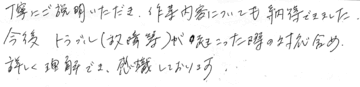 丁寧にご説明いただき、作業内容についても納得できました.
今後 トラブル(故障等)が起こった際の対応含め.
詳しく理解でき、感謝しております.